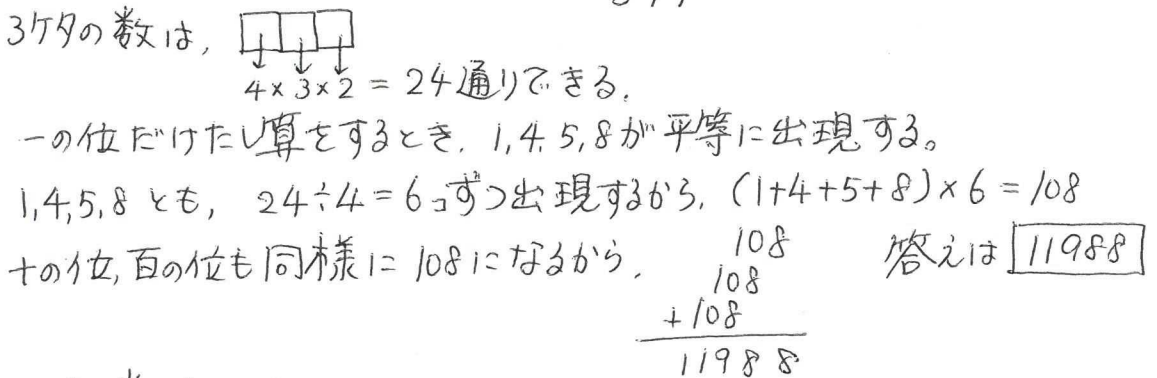 3ケタの数は,
4×3×2 = 24通りできる.
一の位だけたし算をするとき. 1,4,5,8が平等に出現する。
1,4,5,8とも, 24÷4=6コずつ出現するから, (1+4+5+8)×6=108
十の位,百の位も同様に108になるから.
108
108
+108
11988
答えは 11988